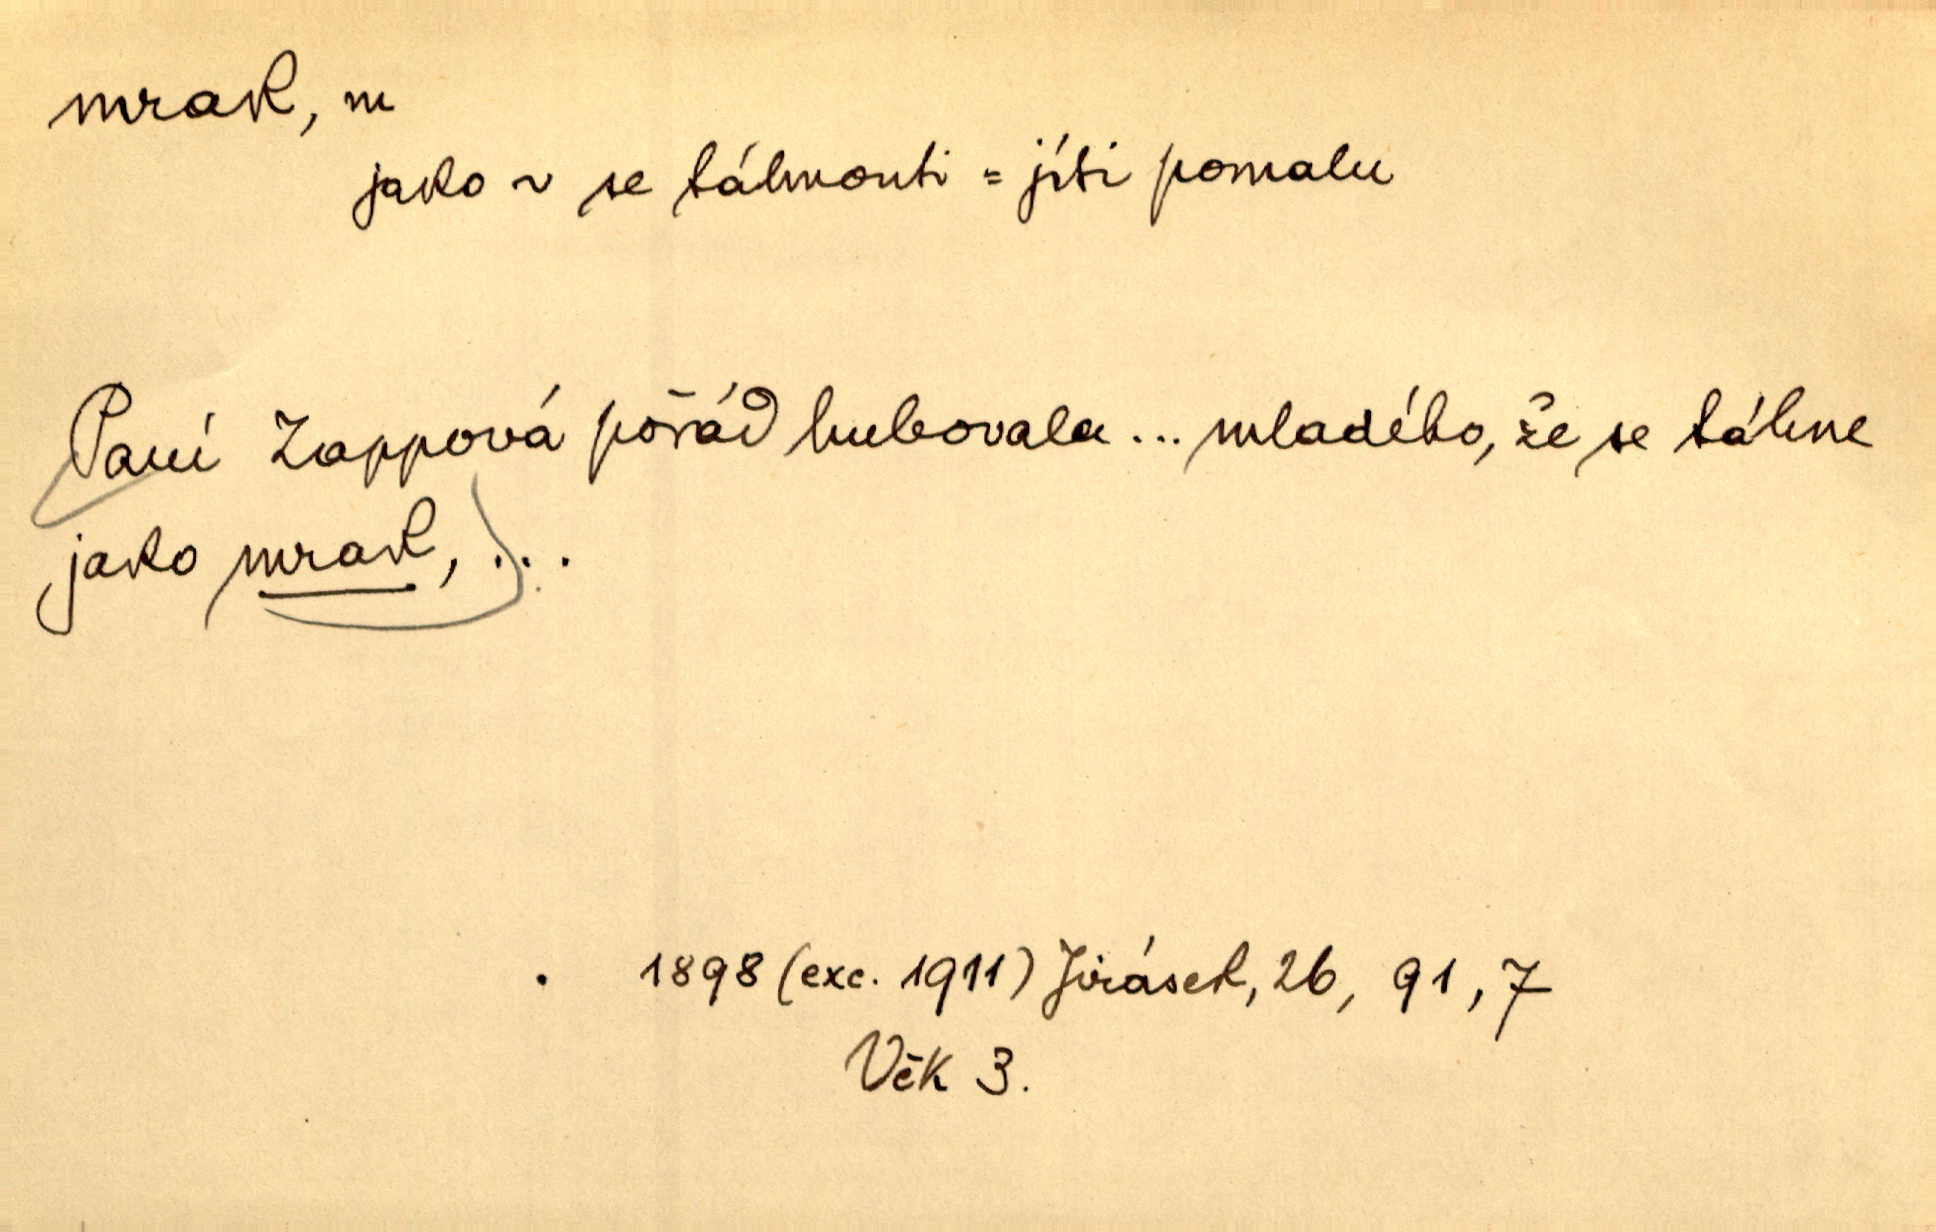 mrak, m
jako ~ se táhnouti = jíti pomalu
Paní Zappová pořád hubovala... mladého, že se táhne
jako mrak, ...
1898 (exc. 1911) Jirásek, 26, 91, 7
Věk 3.